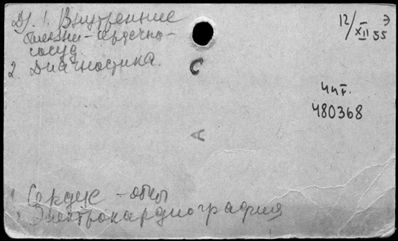 Др. 1. Внутренние
болезни - сердечно-
сосуд.
2. Диагностика.
12/XII 55
Э
С
чит.
480368
А
1 Сердце -
2 Электрокардиография